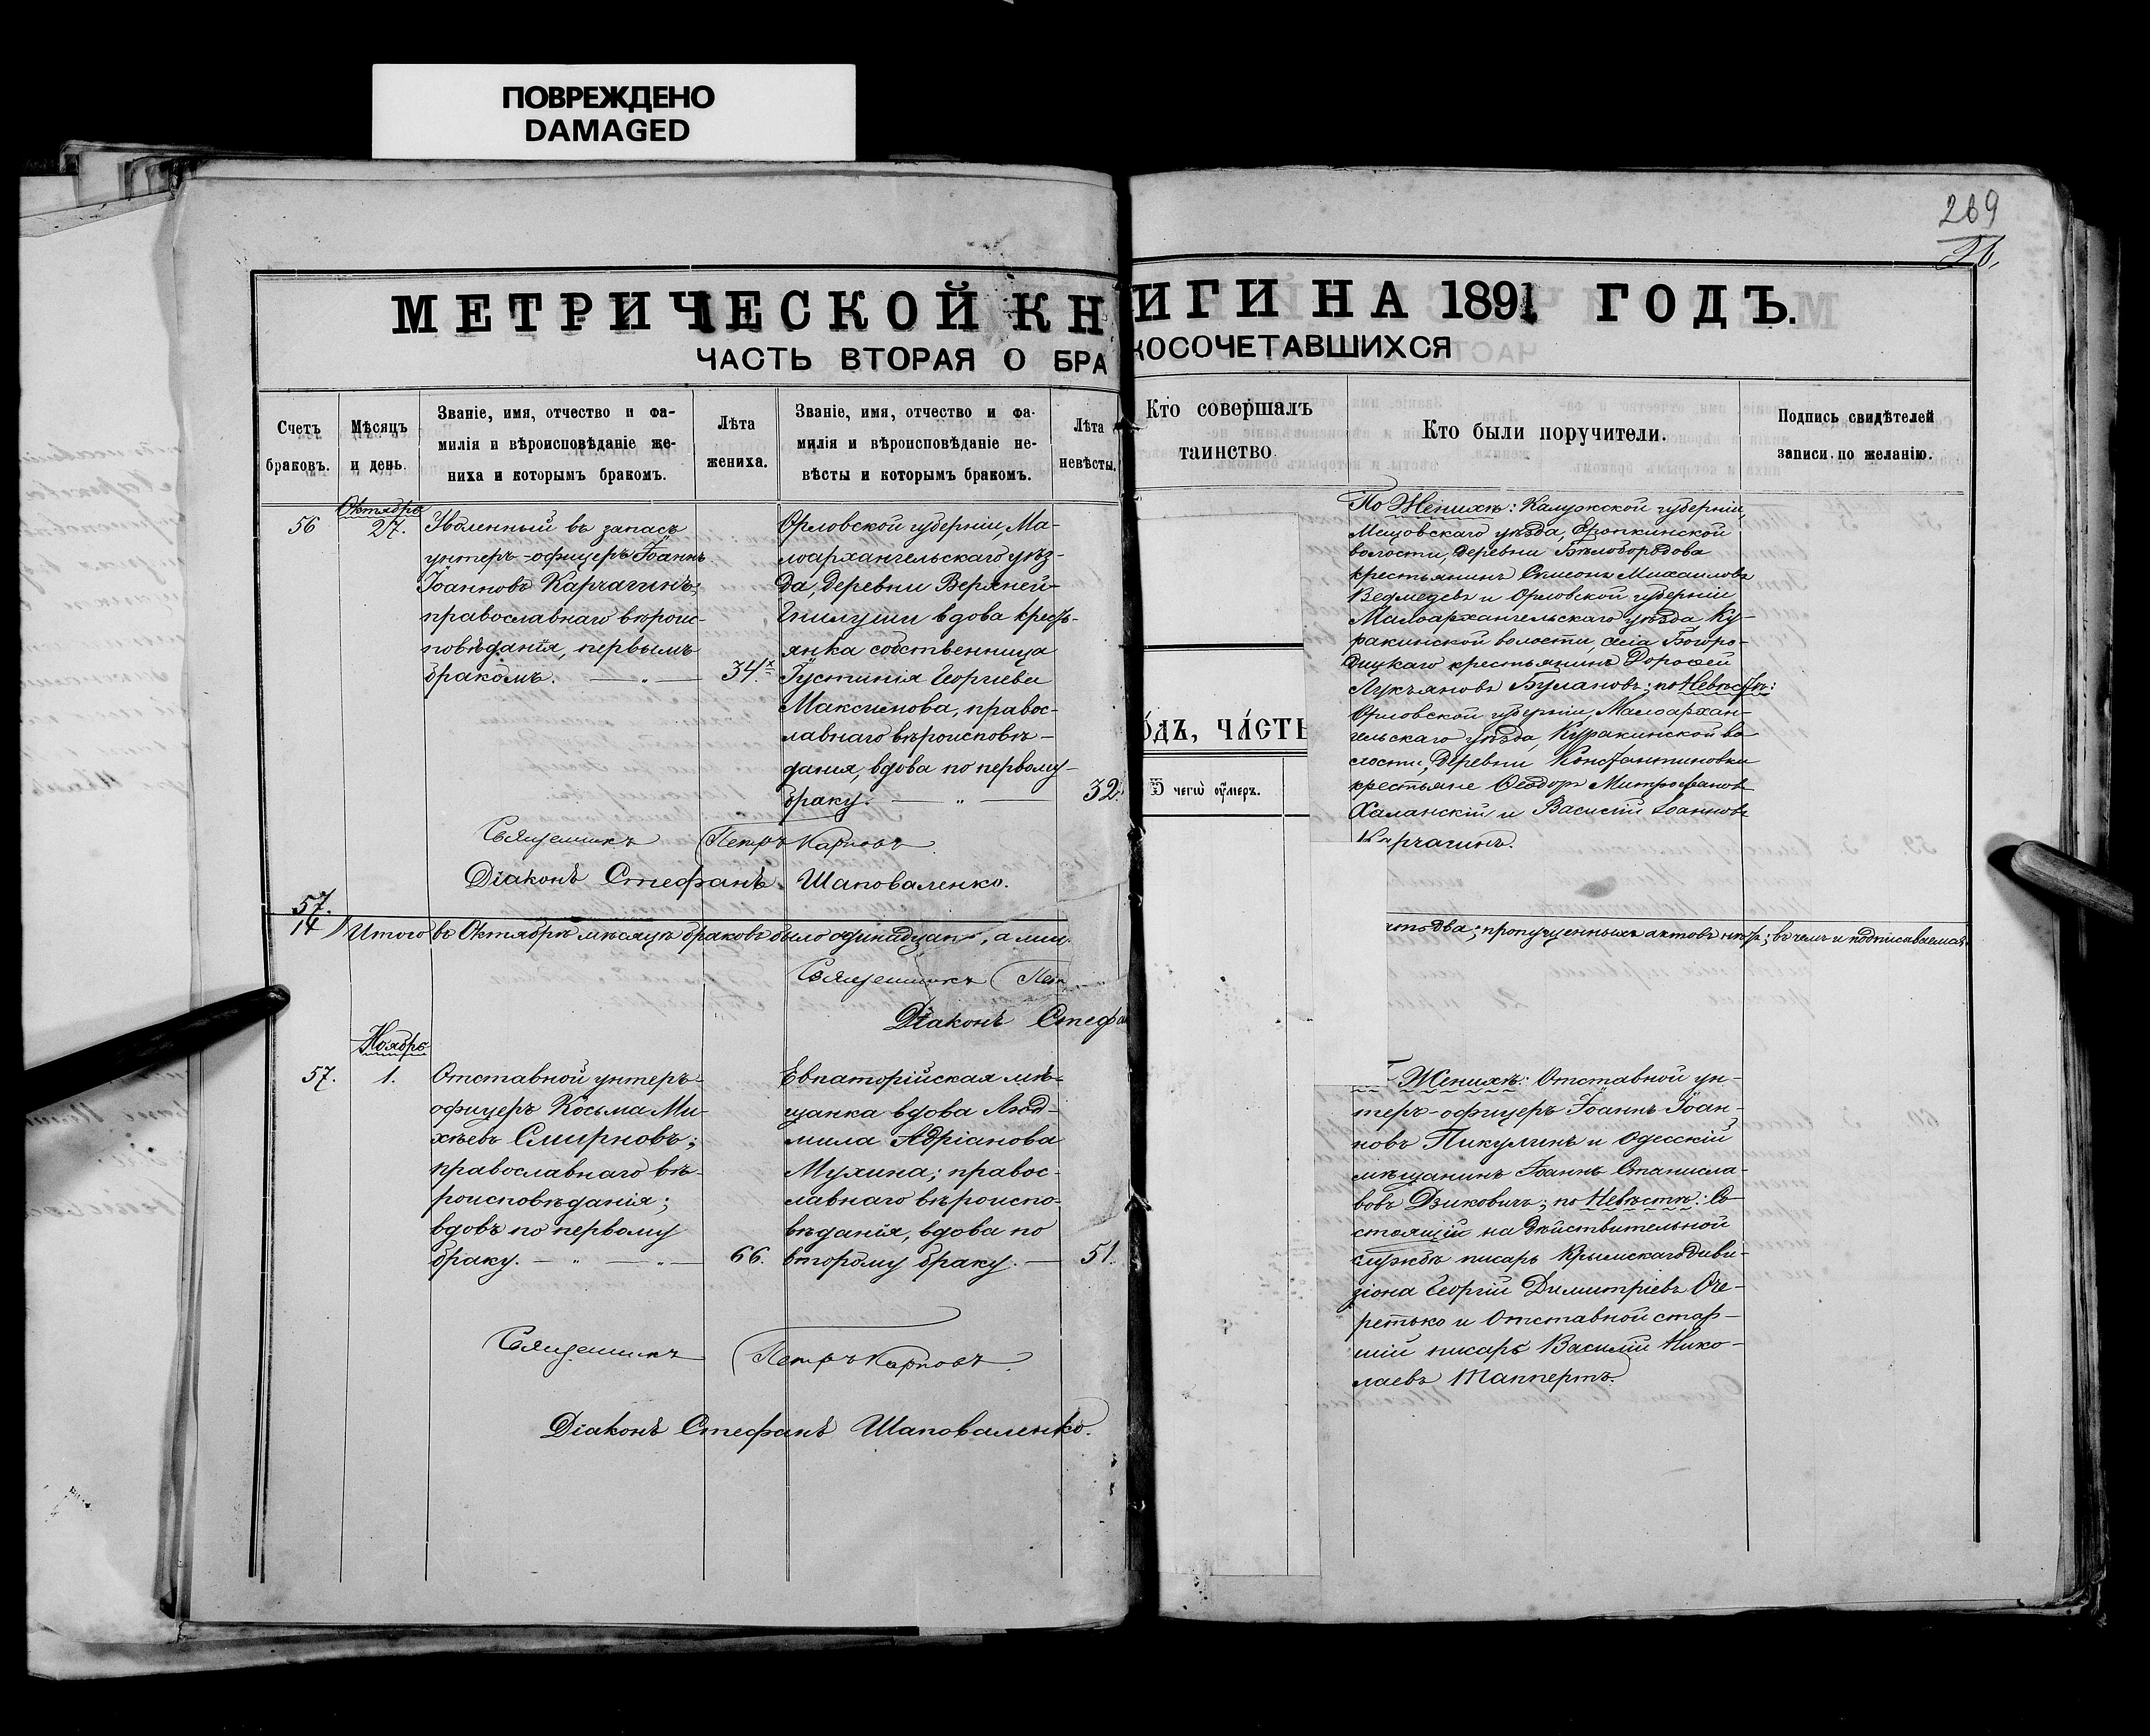 ПОВРЕЖДЕНО
DAMAGED
269
МЕТРИЧЕСКОЙ КНИГИ НА 1891 ГОДЪ.
ЧАСТЬ ВТОРАЯ О БРАКОСОЧЕТАВШИХСЯ
Счетъ
браковъ.
Мѣсяцъ
и день.
Званіе, имя, отчество и фа-
милія и вѣроисповѣданіе же-
ниха и которымъ бракомъ.
Лѣта
жениха.
Званіе, имя, отчество и фа-
милія и вѣроисповѣданіе не-
вѣсты и которымъ бракомъ.
Лѣта
невѣсты.
Кто совершалъ
таинство
Кто были поручители.
Подпись свидѣтелей
записи по желанію.
Октябрь
56
27.
Уволенный въ запасъ
унтеръ-офицеръ Іоаннъ
Іоанновъ Карчагинъ;
православнаго вѣроис-
повѣданія, первымъ
бракомъ. — „ —
34.
Орловской губерніи, Ма-
лоархангельскаго уѣз-
да, деревни Верхней-
Гнилуши вдова кресть-
янка собственница
Іустинія Георгиева
Максимова, правос-
лавнаго вѣроисповѣ-
данія, вдова по первому
браку. — „ —
32.
По Женихѣ: Калужской губерніи,
Мещовскаго уѣзда,
волости, деревни Бѣлобородова
крестьянинъ Симеонъ Михаиловъ
Ведмедевъ и Орловской губерніи
Малоархангельскаго уѣзда Ку-
ракинской волости, села Богоро-
дицкаго крестьянинъ Дорофей
Лукьяновъ Булановъ; по Невѣстѣ:
Орловской губерніи, Малоархан-
гельскаго уѣзда, Куракинской во
лости, деревни Константиновки
крестьяне Ѳеодоръ Митрофановъ
Халанскій и Василій Іоанновъ
Карчагинъ.
Священникъ Петръ Карповъ.
Діаконъ Стефанъ Шаповаленко.
ОДЪ, ЧАСТЬ
Ѿ чегѡ оумеръ.
57.
14
Итого въ Октябрѣ мѣсяцѣ браковъ было одинадцать, а
два; пропущенныхъ актовъ нѣтъ; въ чемъ и подписываемся.
Священникъ Пет
Діаконъ Стефа
Ноябрь
57.
1.
Отставной унтеръ-
офицеръ Косьма Ми-
хѣевъ Смирновъ;
православнаго вѣ-
роисповѣданія;
вдовъ по первому
браку. — „ — „ —
66.
Евпаторійская мѣ-
щанка вдова Люд-
мила Адріанова
Мухина; правос-
лавнаго вѣроиспо-
вѣданія, вдова по
второму браку. —
51.
Женихѣ: Отставной ун-
теръ-офицеръ Іоаннъ Іоан-
новъ Пикулинъ и Одесскій
мѣщанинъ Іоаннъ Станисла-
вовъ Дзиковичъ; по Невѣстѣ: Со-
стоящій на дѣйствительной
службѣ писарь Крымскаго диви-
зіона Георгій Димитріевъ Оче-
ретько и Отставной стар-
шій писарь Василій Нико-
лаевъ Таппертъ.
Священникъ Петръ Карповъ.
Діаконъ Стефанъ Шаповаленко.